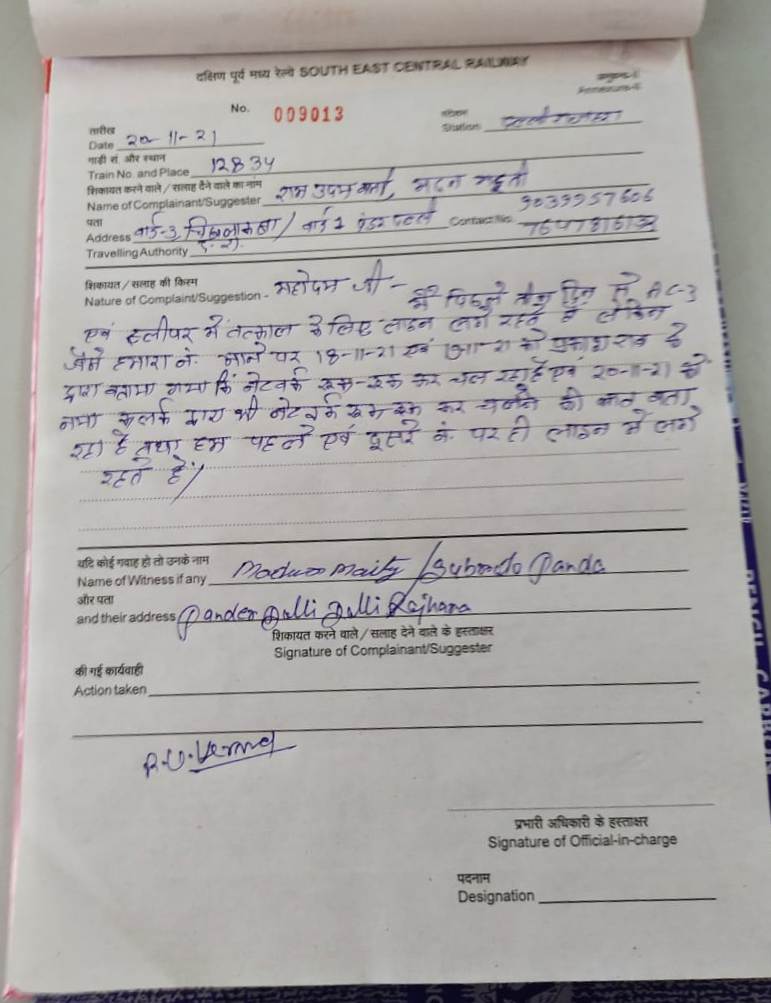 दक्षिण पूर्व मध्य रेल्वे SOUTH EAST CENTRAL RAILWAY
अनुलग्नक-II
Annexure-II
No. 009013
स्टेशन
Station
तारीख
Date 20-11-21
गाड़ी सं. और स्थान
Train No. and Place 12834
शिकायत करने वाले / सलाह देने वाले का नाम
Name of Complainant/Suggester राम उपम वर्मा, मदन
पता 9039957606
Address वार्ड-3, चिखलाकसा / वार्ड 2 पंडर दल्ली Contact No.
Travelling Authority
शिकायत / सलाह की किस्म
Nature of Complaint/Suggestion - महोदय जी - मैं पिछले तीन दिन से AC-3
एवं स्लीपर में तत्काल के लिए लाइन लगे रहते हैं लेकिन
जैसे हमारा नं. आने पर 18-11-21 एवं 19-11-21 को प्रकाश राव के
द्वारा बताया गया कि नेटवर्क रूक-रूक कर चल रहा है एवं 20-11-21 को
नया क्लर्क द्वारा भी नेटवर्क रूक रूक कर चलने की बात बता
रहा है तथा हम पहले एवं दूसरे नं. पर ही लाइन में लगे
रहते हैं।
यदि कोई गवाह हो तो उनके नाम
Name of Witness if any Maity / Subrato Panda
और पता
and their address Pander Dalli Dalli Rajhara
शिकायत करने वाले / सलाह देने वाले के हस्ताक्षर
Signature of Complainant/Suggester
की गई कार्यवाही
Action taken
R.U. Verma
प्रभारी अधिकारी के हस्ताक्षर
Signature of Official-in-charge
पदनाम
Designation